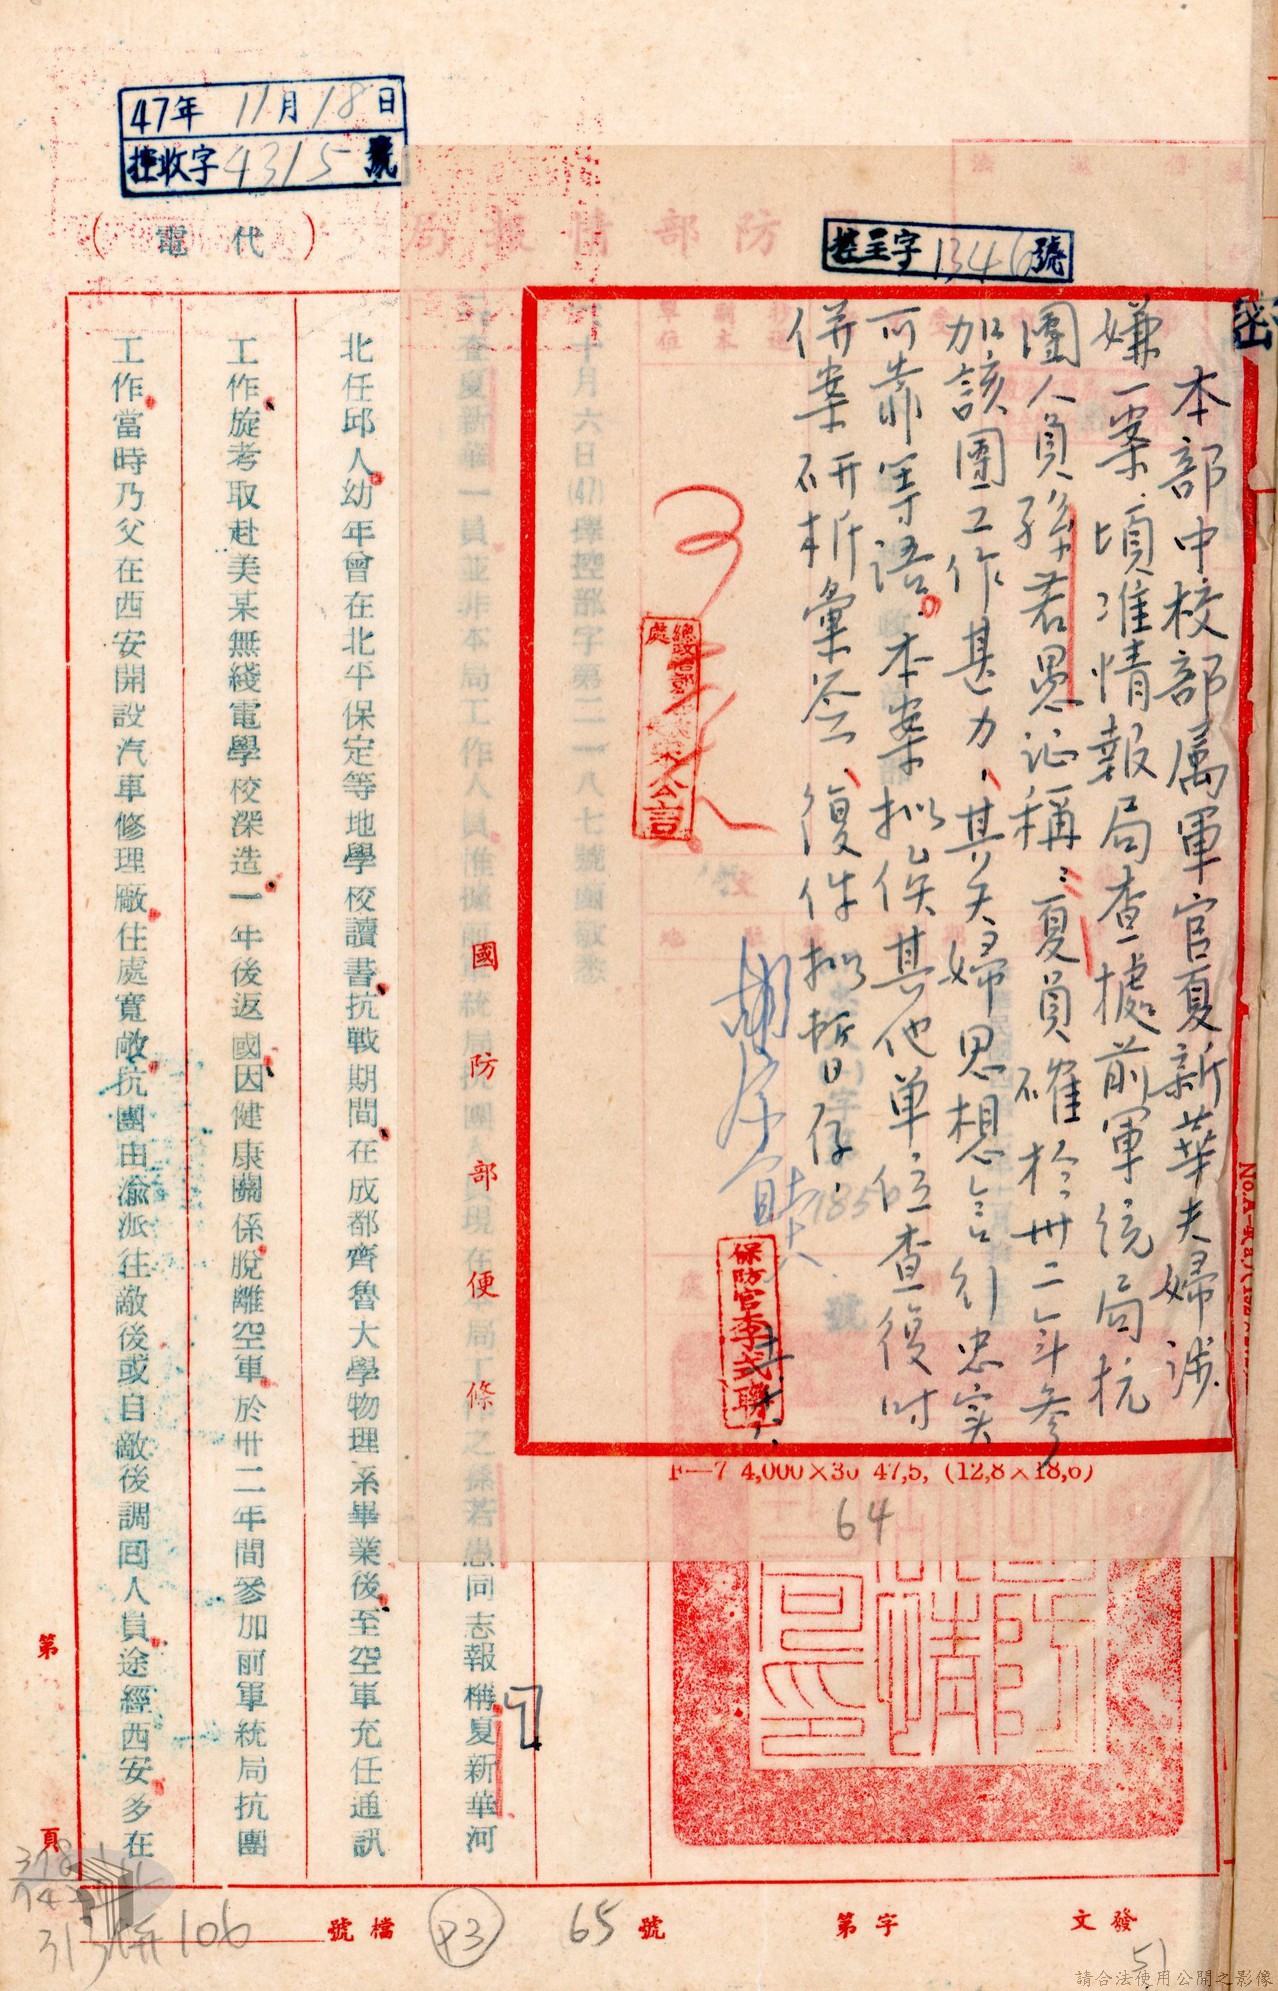 47年11月18日
控收字4315號
(代電)
國防部情報局
控呈字1346號
密
本部中校部屬軍官夏新華夫婦涉
嫌一案，頃准情報局查據前軍統局抗
團人員孫若愚証稱：夏員確於卅二年參
加該團工作甚力，其夫婦思想言行忠实
可靠等語。本案擬俟其他单位查復时
併案研析彙签，復件拟暫存。
保防官李式聯
F—7 4,000×30 47,5, (12,8×18,6)
64
國防部便條
十月六日(47)擇控部字第二一八七號函敬悉
查夏新華一員並非本局工作人員惟據前軍統局抗團人員現在本局工作之孫若愚同志報稱夏新華河
北任邱人幼年曾在北平保定等地學校讀書抗戰期間在成都齊魯大學物理系畢業後至空軍充任通訊
工作旋考取赴美某無綫電學校深造一年後返國因健康關係脫離空軍於卅二年間參加前軍統局抗團
工作當時乃父在西安開設汽車修理廠住處寬敞抗團由渝派往敵後或自敵後調回人員途經西安多在
第 頁
發文 字第 號 65
檔號 P3
106
313併
51
請合法使用公開之影像